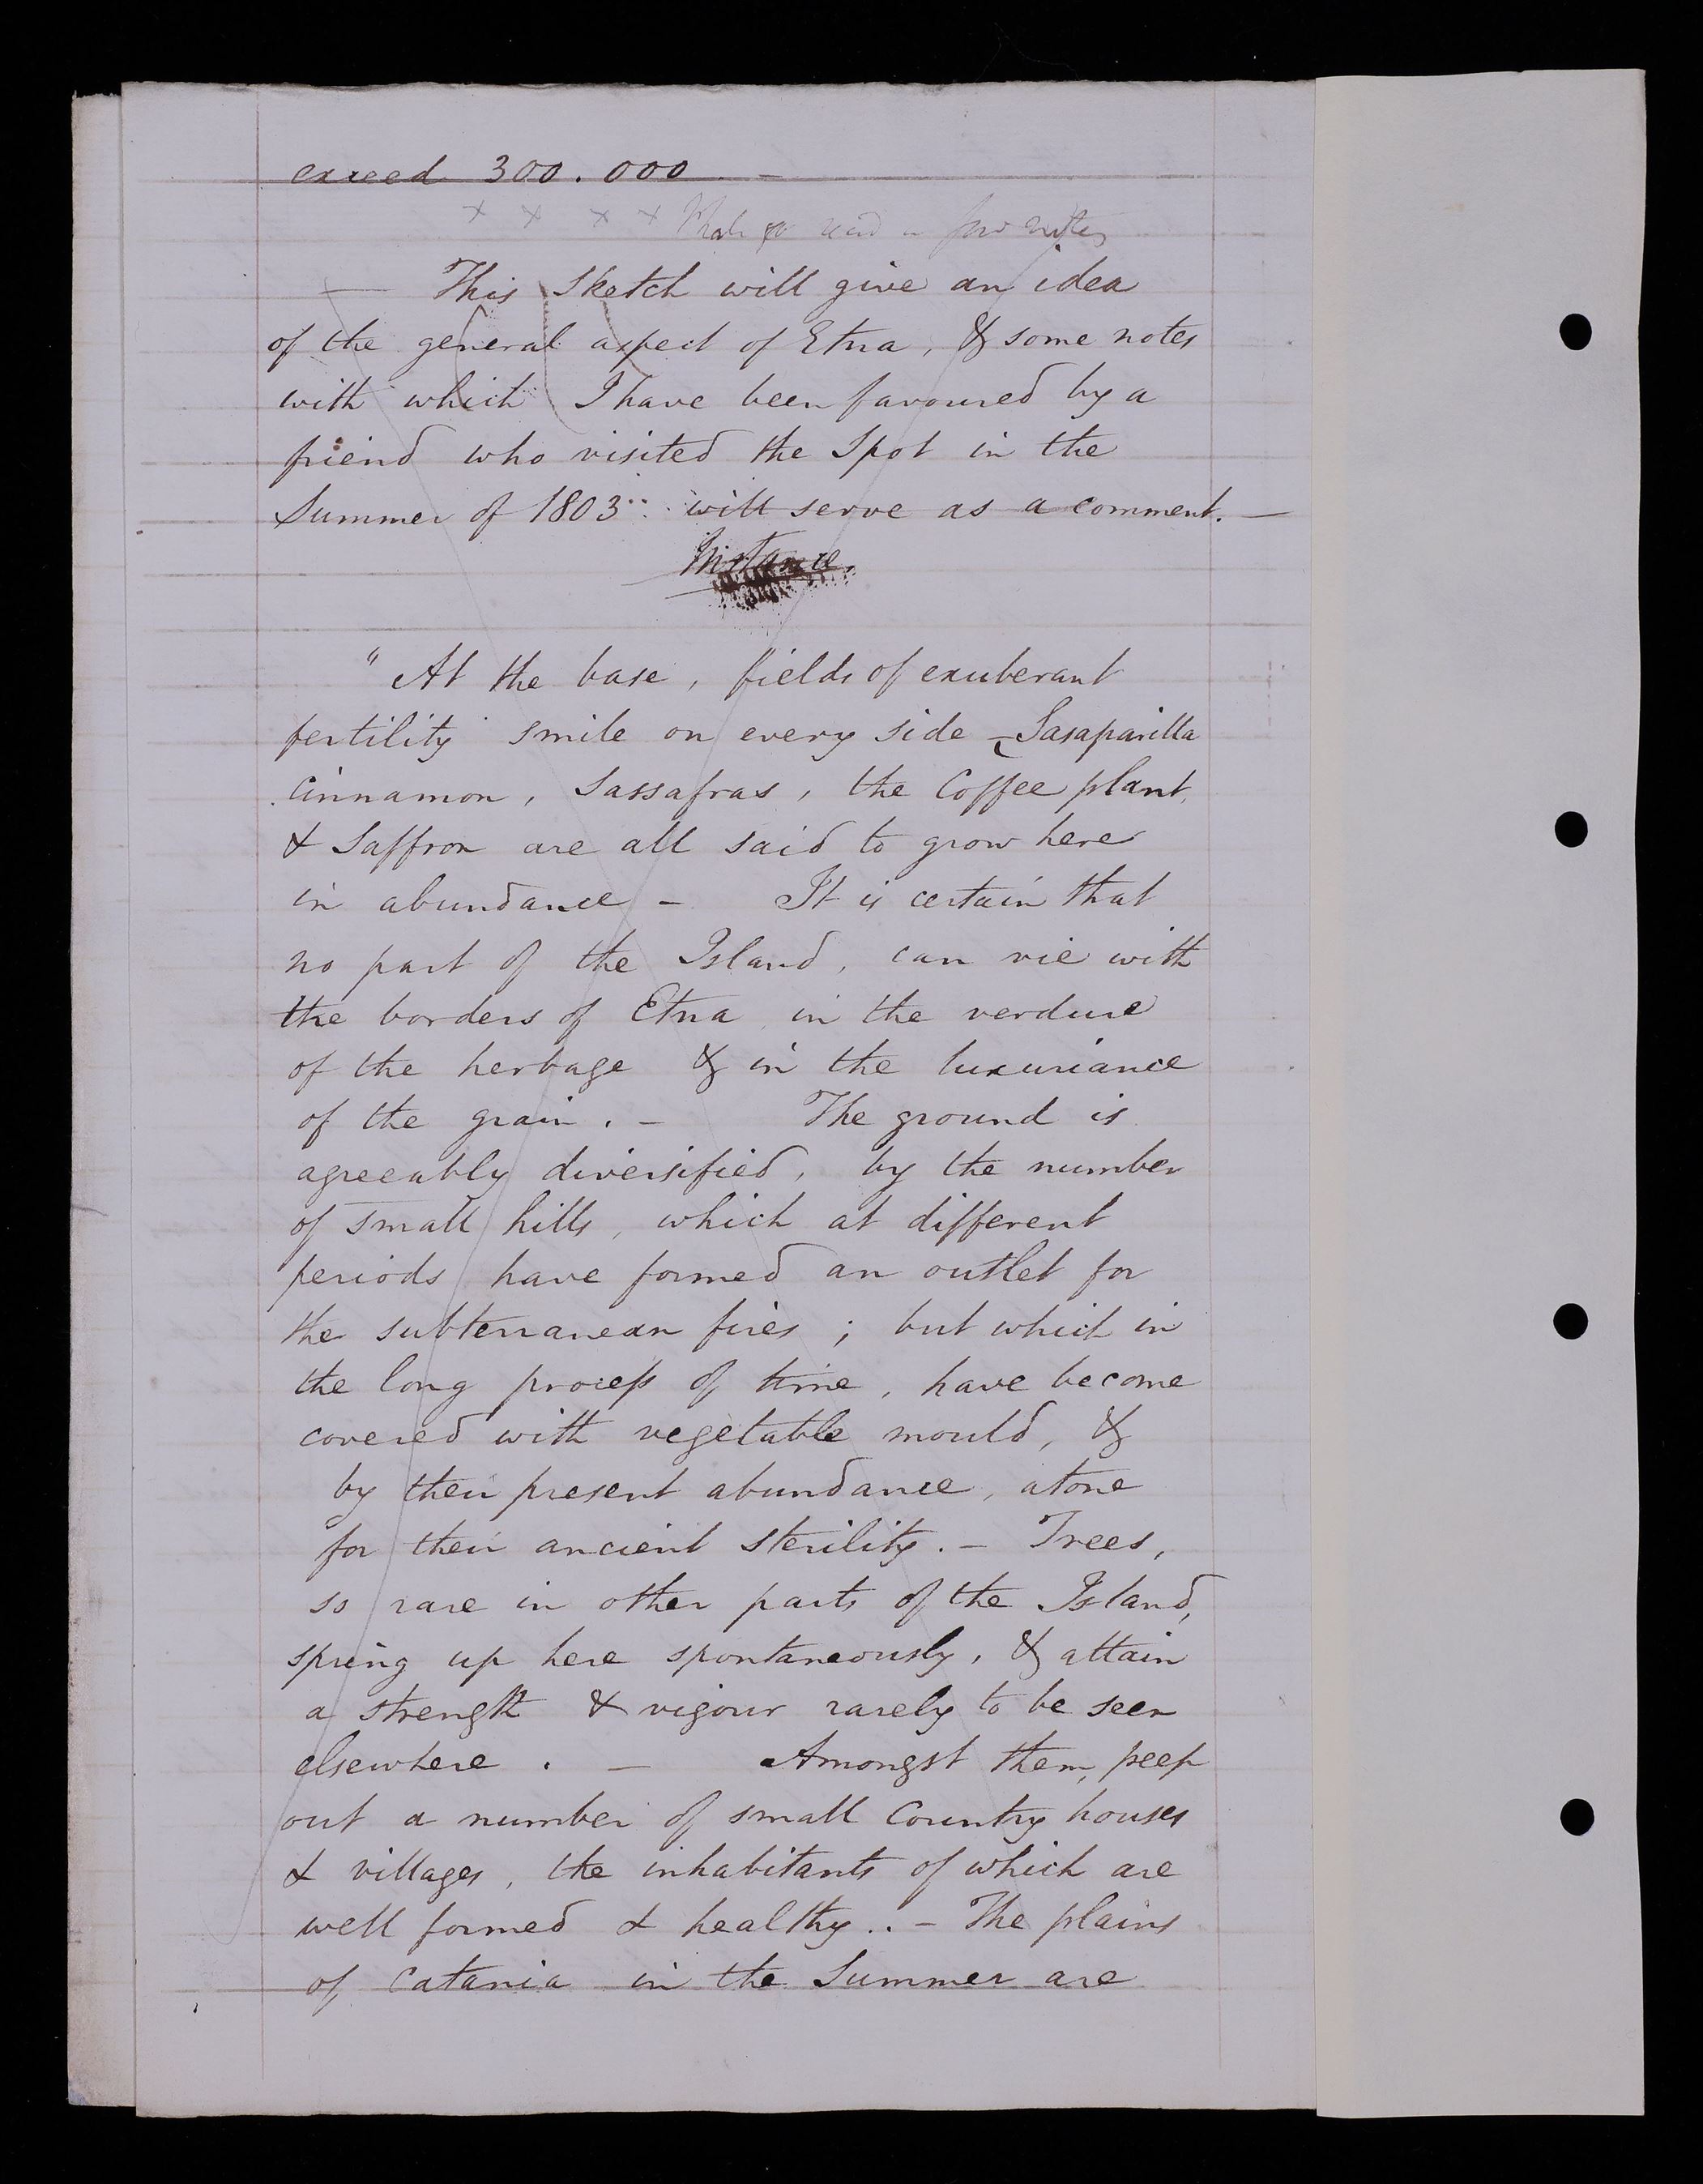 exceed 300.000 -
x x x x few notes
— This Sketch will give an idea
of the general aspect of Etna, & some notes
with which I have been favoured by a
friend who visited the Spot in the
Summer of 1803 will serve as a comment. —
Instance.
" At the base, fields of exuberant
fertility smile on every side - Sasaparilla
Cinnamon, Sassafras, the Coffee plant,
& Saffron are all said to grow here
in abundance - It is certain that
no part of the Island, can vie with
the borders of Etna in the verdure
of the herbage & in the luxuriance
of the grain. - The ground is
agreeably diversified, by the number
of small hills, which at different
periods have formed an outlet for
the subterranean fires ; but which in
the long process of time, have become
covered with vegetable mould, &
by their present abundance, atone
for their ancient sterility. - Trees,
so rare in other parts of the Island,
spring up here spontaneously, & attain
a strength & vigour rarely to be seen
elsewhere . — Amongst them, peep
out a number of small Country houses
& villages, the inhabitants of which are
well formed & healthy.. - The plains
of Catania in the Summer are